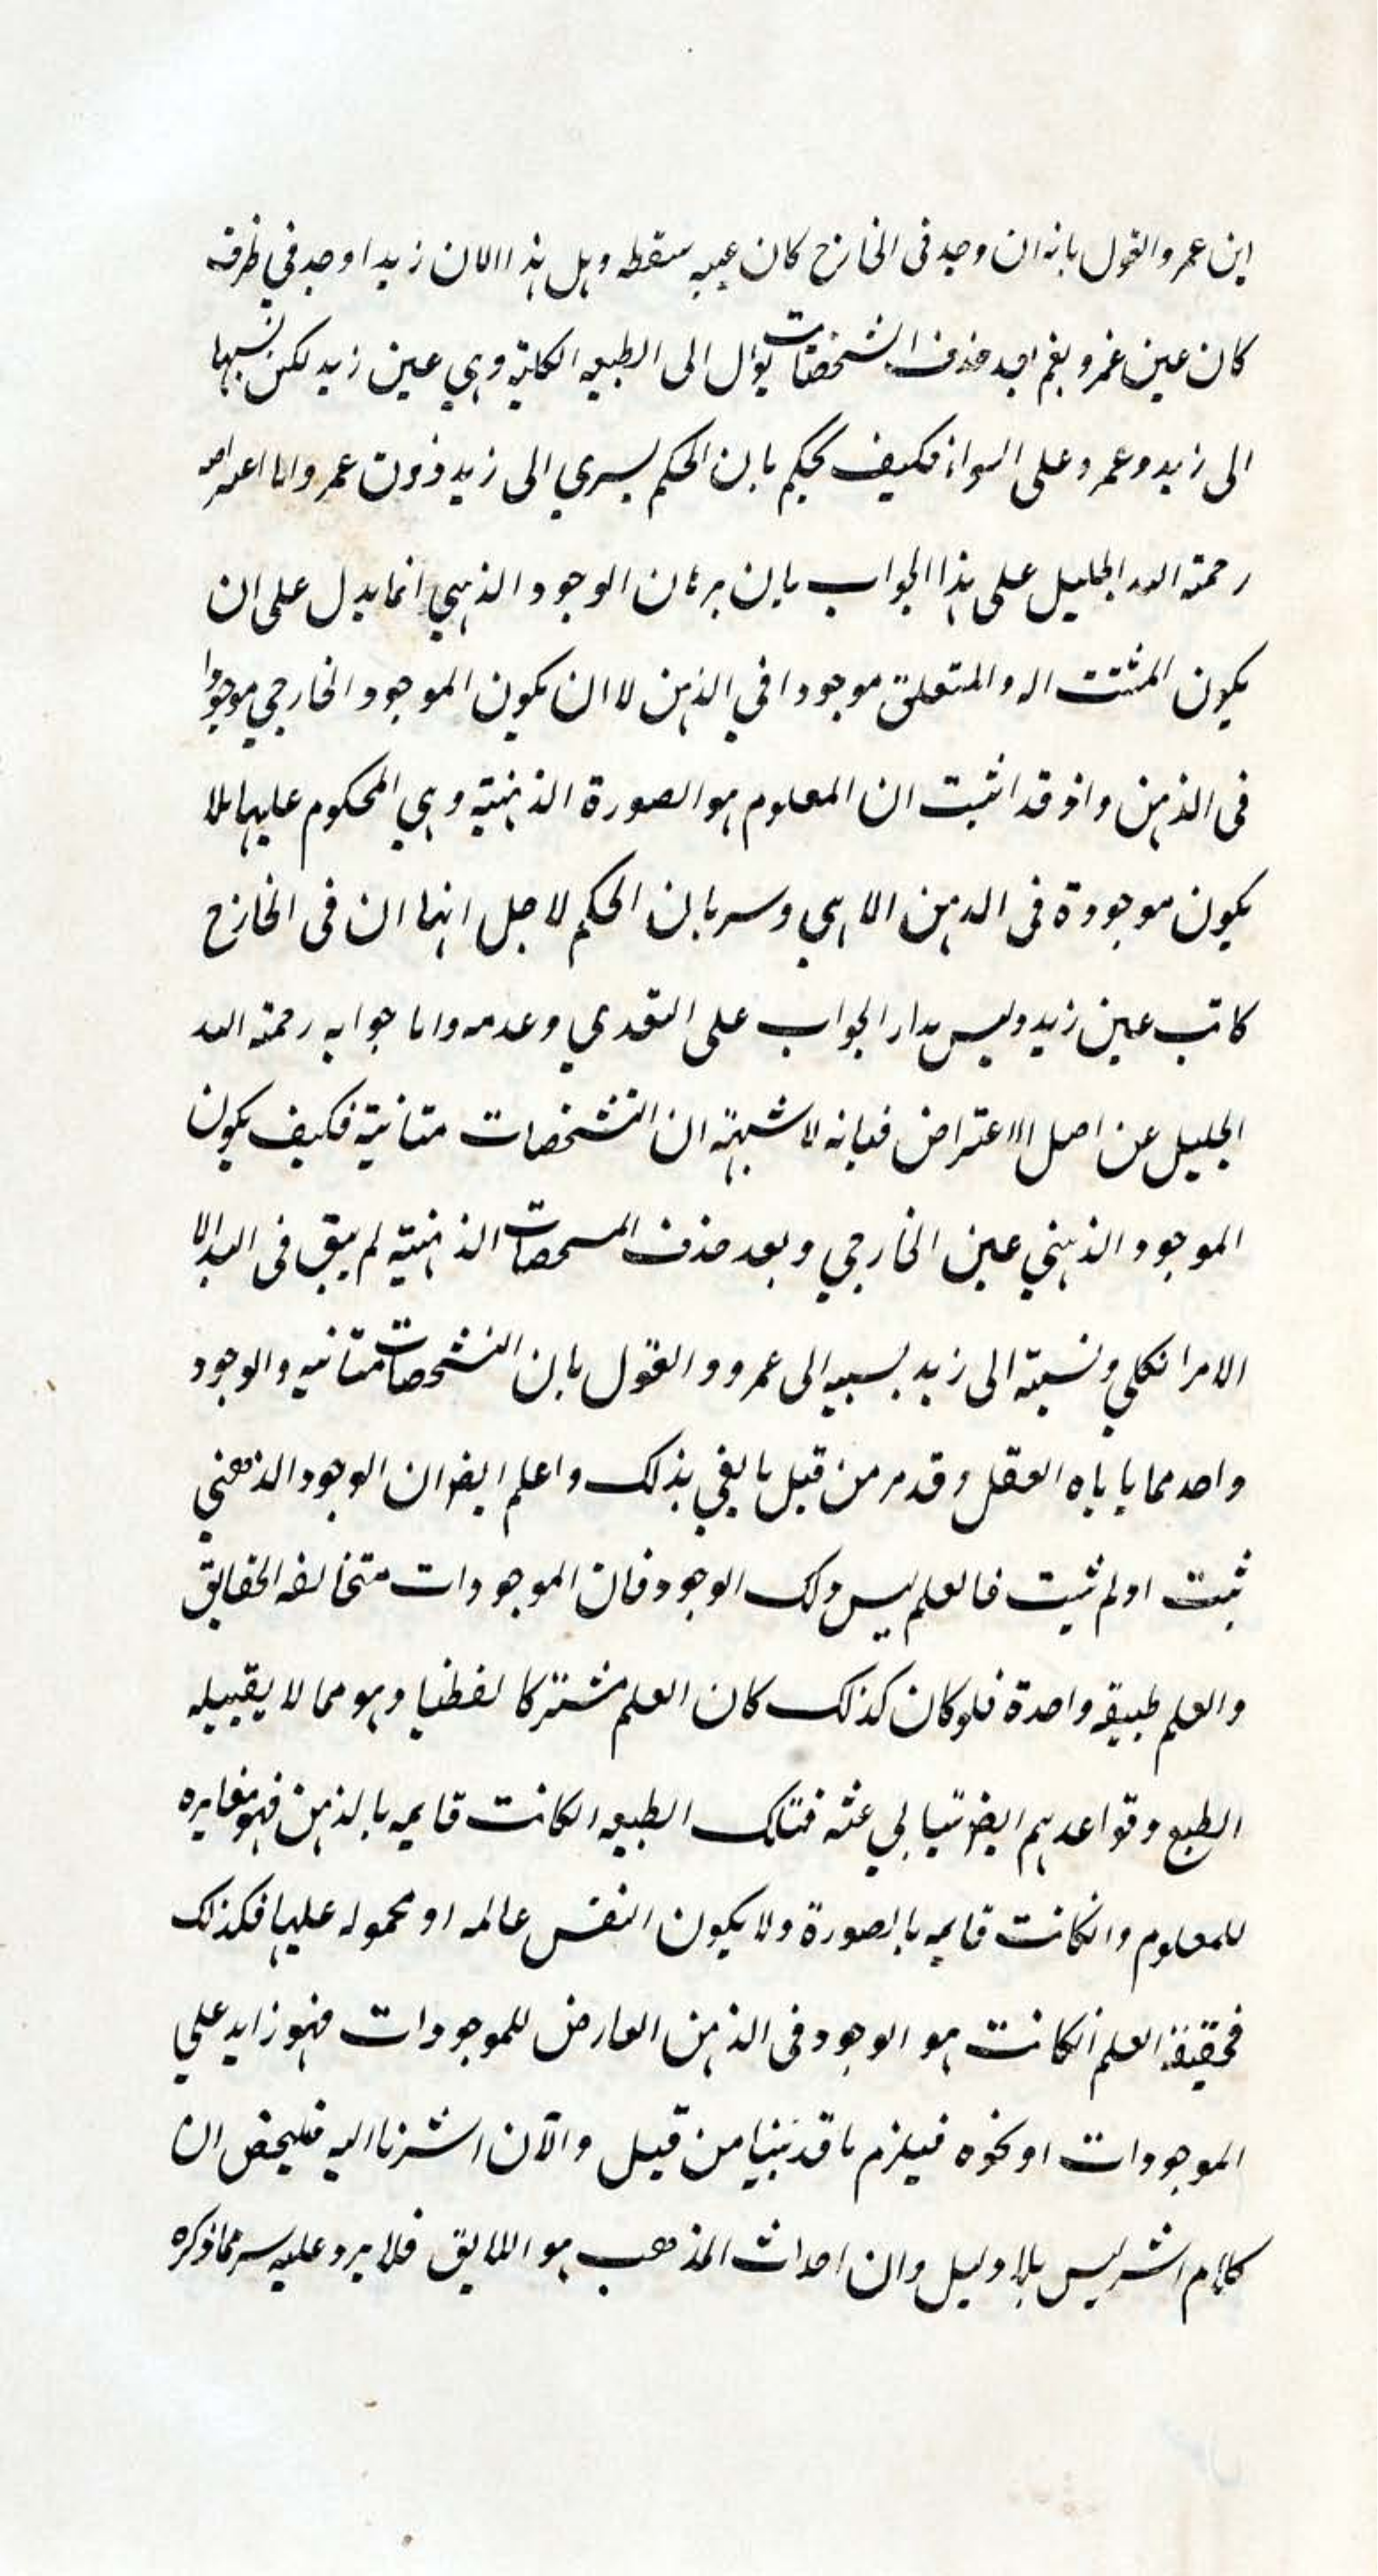 اين عمر والقول بانه ان وجد فى الخارج كان عينه سقطه وهل هذا الاان زيدا وجد في ظرفه
كان عين عمرو نعم بعد حذف التشخصات يؤل الى الطبيعه الكلية وهي عين زيد لكن نسبتها
الى زيد وعمرو على السواء فكيف يحكم بان الحكم يسري الى زيد دون عمر واما اعتراضه
رحمة الله الجليل على هذا الجواب بان برهان الوجود الذهني انما يدل على ان
يكون المثبت له والمتعلق موجودا في الذهن لا ان يكون الموجود الخارجي موجودا
فى الذهن واذ قد اثبت ان المعلوم هو الصورة الذهنية وهي المحكوم عليها فلا
يكون موجودة فى الذهن الا هي وسريان الحكم لاجل انها ان فى الخارج
كانت عين زيد وليس مدار الجواب على التعدي وعدمه واما جوابه رحمة الله
الجليل عن اصل الاعتراض فبانه لا شبهة ان التشخصات متنافية فكيف يكون
الموجود الذهني عين الخارجي وبعد حذف المشخصات الذهنية لم يبق فى اليد الا
الامر الكلي ونسبته الى زيد كنسبته الى عمرو والقول بان التشخصات متنافيه والوجود
واحد مما يا باه العقل وقد مر من قبل ما يفي بذلك واعلم ايضا ان الوجود الذهني
ثبت او لم يثبت فالعلم ليس ذلك الوجود فان الموجودات متخالفه الحقايق
والعلم طبيعة واحدة فلو كان كذلك كان العلم مشتركا لفظيا وهو مما لا يقبله
الطبع وقواعدهم ايضا تتابى عنه فتلك الطبيعه انكانت قايمه بالذهن فهو مغايره
للمعلوم وانكانت قايمه بالصورة ولا يكون النفس عالمه او محموله عليها فكذلك
فحقيقة العلم انكانت هو الوجود فى الذهن العارض للموجودات فهو زايد علي
الموجودات او نحوه فيلزم ما قد بينا من قبل والآن اشرنا اليه فليحفض ان
كلام اشر ليس بلا دليل وان احداث المذهب هو اللايق فلا يرد عليه سر مما ذكره